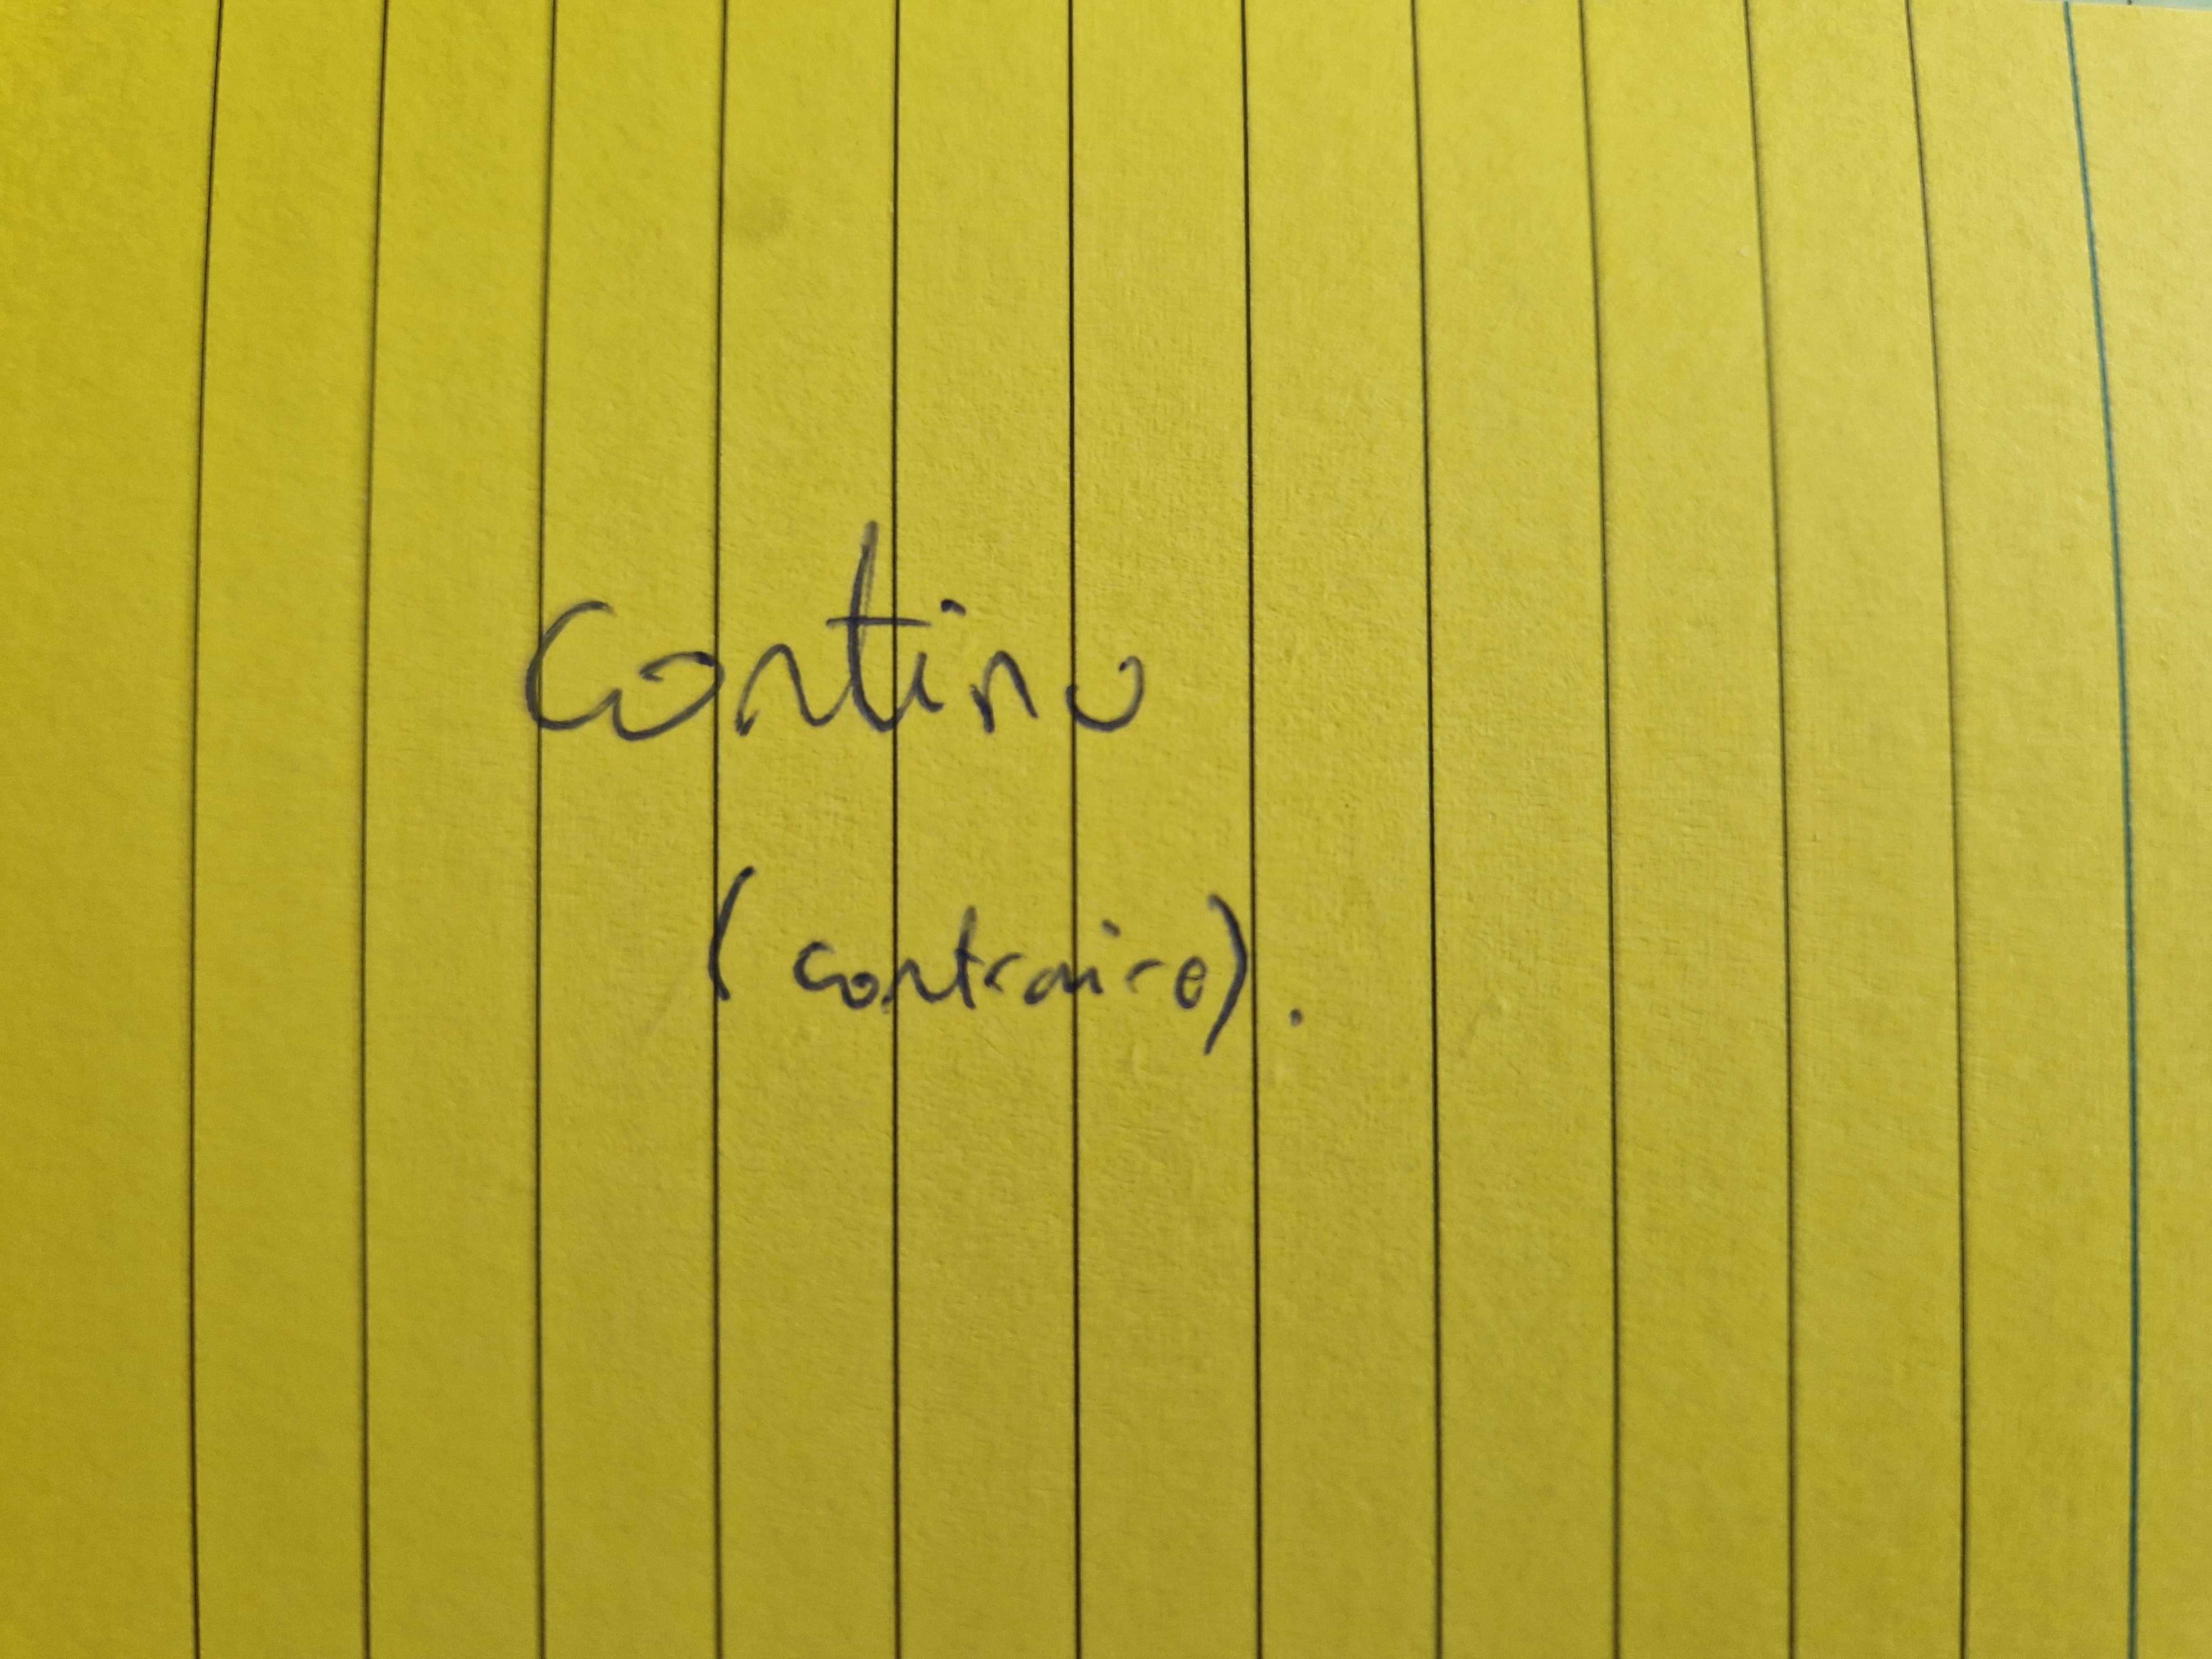 continu
(contraire).